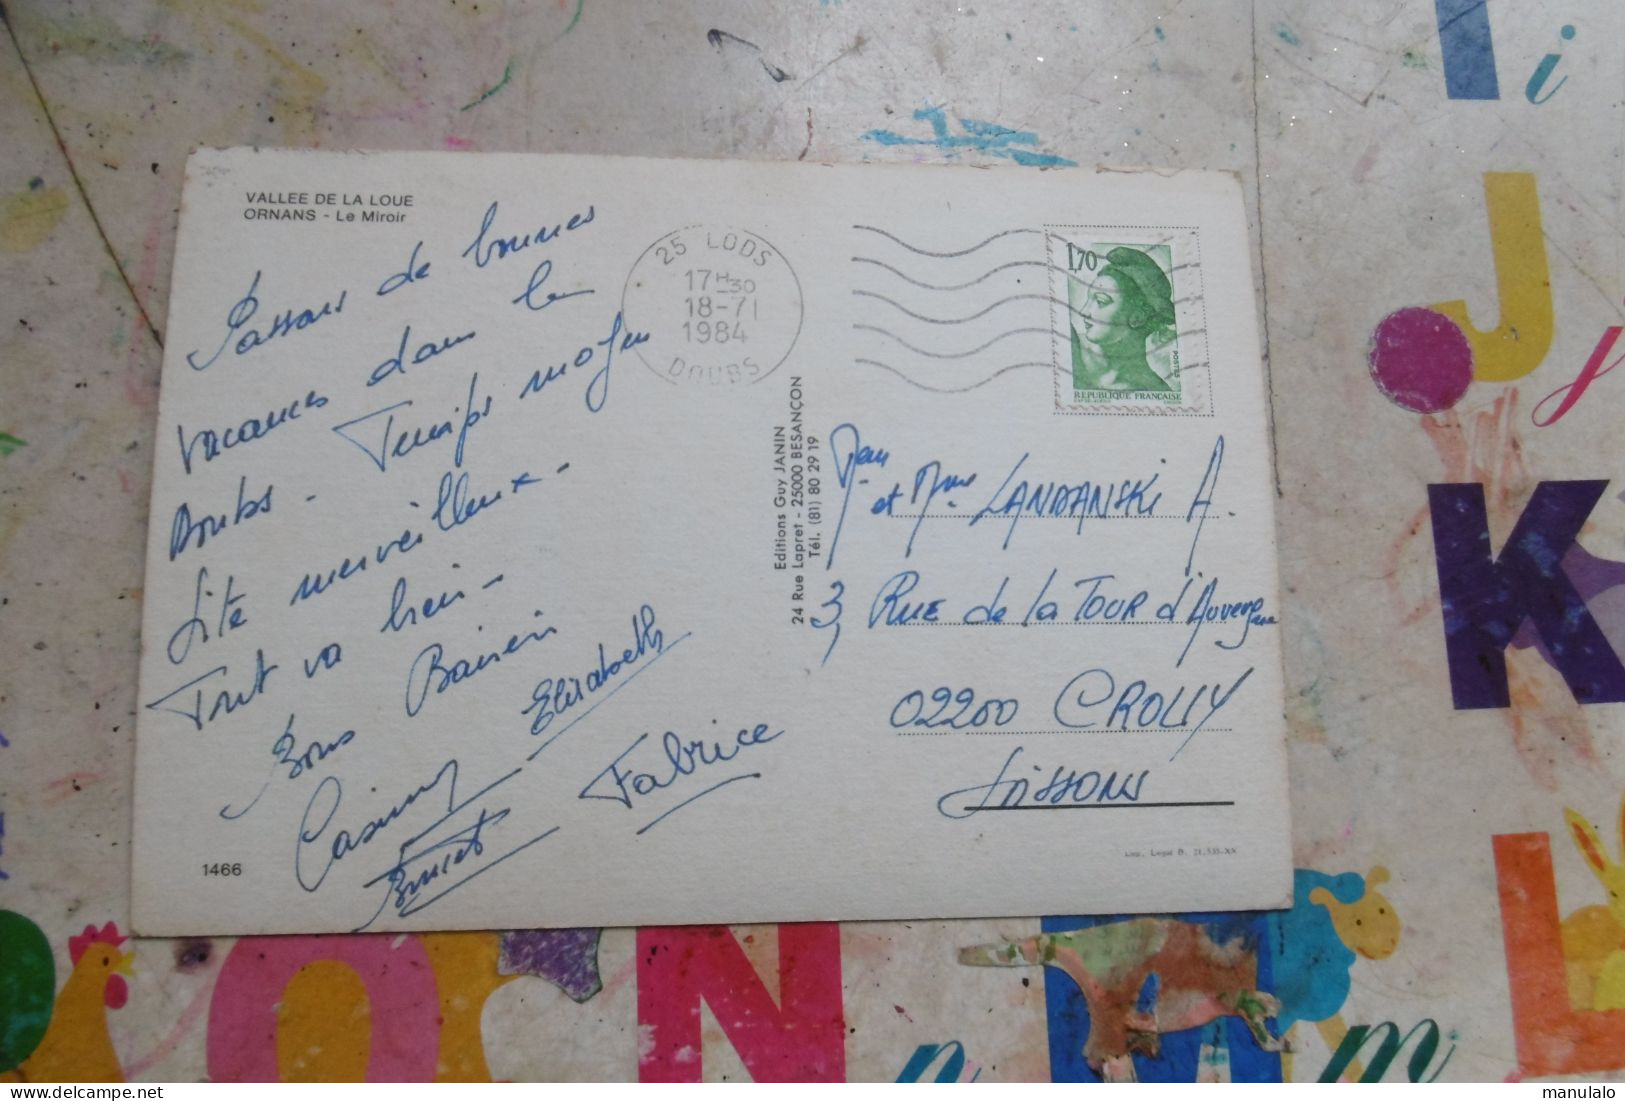 VALLEE DE LA LOUE
ORNANS - Le Miroir
Passons de bonnes
vacances dans le
Doubs - Temps moyen
Site merveilleux -
Tout va bien -
Bons Baisers
Elisabeth
Casimir
Fabrice
1466
25 LODS
17H30
18-7
1984
DOUBS
1,70
POSTES
REPUBLIQUE FRANCAISE
Editions Guy JANIN
24 Rue Lapret - 25000 BESANÇON
Tél. (81) 80 29 19
et Mme LANDANSKI A.
3, RUE de la TOUR d'Auvergne
02200 CROUY
Soissons
i
J
j
K
L
O
N
n
M
m
manulalo